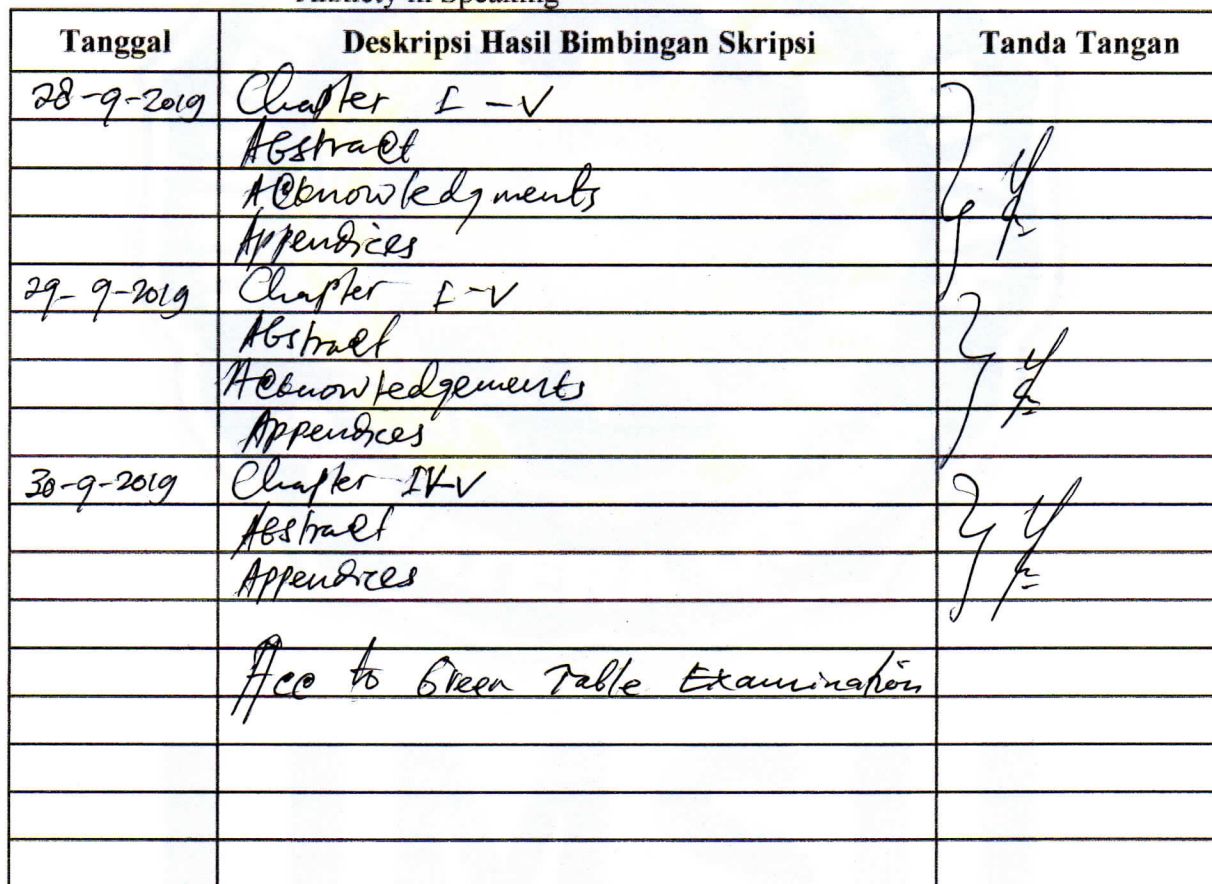 in Speaking
Tanggal Deskripsi Hasil Bimbingan Skripsi Tanda Tangan
28-9-2019 Chapter I - V
Abstract
Acknowledgments
Appendices
29-9-2019 Chapter I-V
Abstract
Acknowledgements
Appendices
30-9-2019 Chapter IV-V
Abstract
Appendices
Acc to Green Table Examination